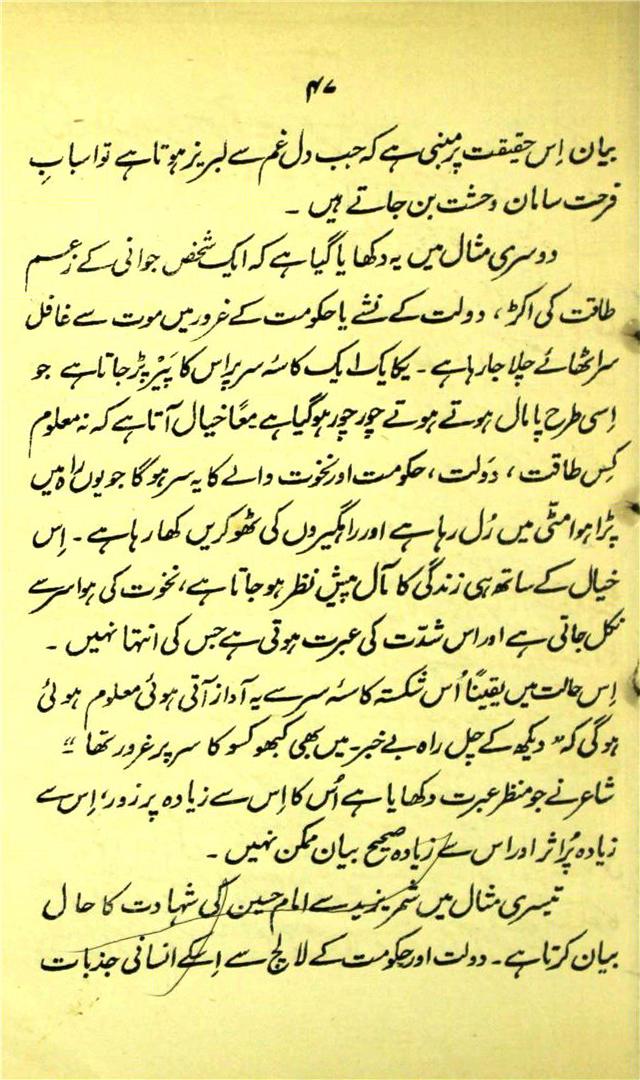 ۴۷
بیان اِس حقیقت پر مبنی ہے کہ جب دل غم سے لبریز ہوتا ہے تو اسبابِ
فرحت سامان وحشت بن جاتے ہیں ۔
دوسری مثال میں یہ دکھایا گیا ہے کہ ایک شخص جوانی کے زعم
طاقت کی اکڑ ، دولت کے نشے یا حکومت کے غرور میں موت سے غافل
سر اٹھائے چلا جا رہا ہے ۔ یکایک ایک کاسۂ سر پر اس کا پَیر پڑ جاتا ہے جو
اِسی طرح پامال ہوتے ہوتے چور چور ہو گیا ہے معًا خیال آتا ہے کہ نہ معلوم
کِس طاقت ، دَولت ، حکومت اور نخوت والے کا یہ سر ہو گا جو یوں راہ میں
پڑا ہوا مٹّی میں رُل رہا ہے اور راہگیروں کی ٹھوکریں کھا رہا ہے ۔ اِس
خیال کے ساتھ ہی زندگی کا مآل پیش نظر ہو جاتا ہے ، نخوت کی ہوا سر سے
نکل جاتی ہے اور اس شدّت کی عبرت ہوتی ہے جس کی انتہا نہیں ۔
اِس حالت میں یقینًا اُس شکستہ کاسۂ سر سے یہ آواز آتی ہوئی معلوم ہوئی
ہو گی کہ ” دیکھ کے چل راہ بے خبر ۔ میں بھی کبھو کسو کا سر پر غرور تھا “
شاعر نے جو منظر عبرت دکھایا ہے اُس کا اِس سے زیادہ پر زور ، اِس سے
زیادہ پُر اثر اور اس سے زیادہ صحیح بیان ممکن نہیں ۔
تیسری مثال میں شمر یزید سے امام حسین کی شہادت کا حال
بیان کرتا ہے ۔ دولت اور حکومت کے لالچ سے اِسکے انسانی جذبات